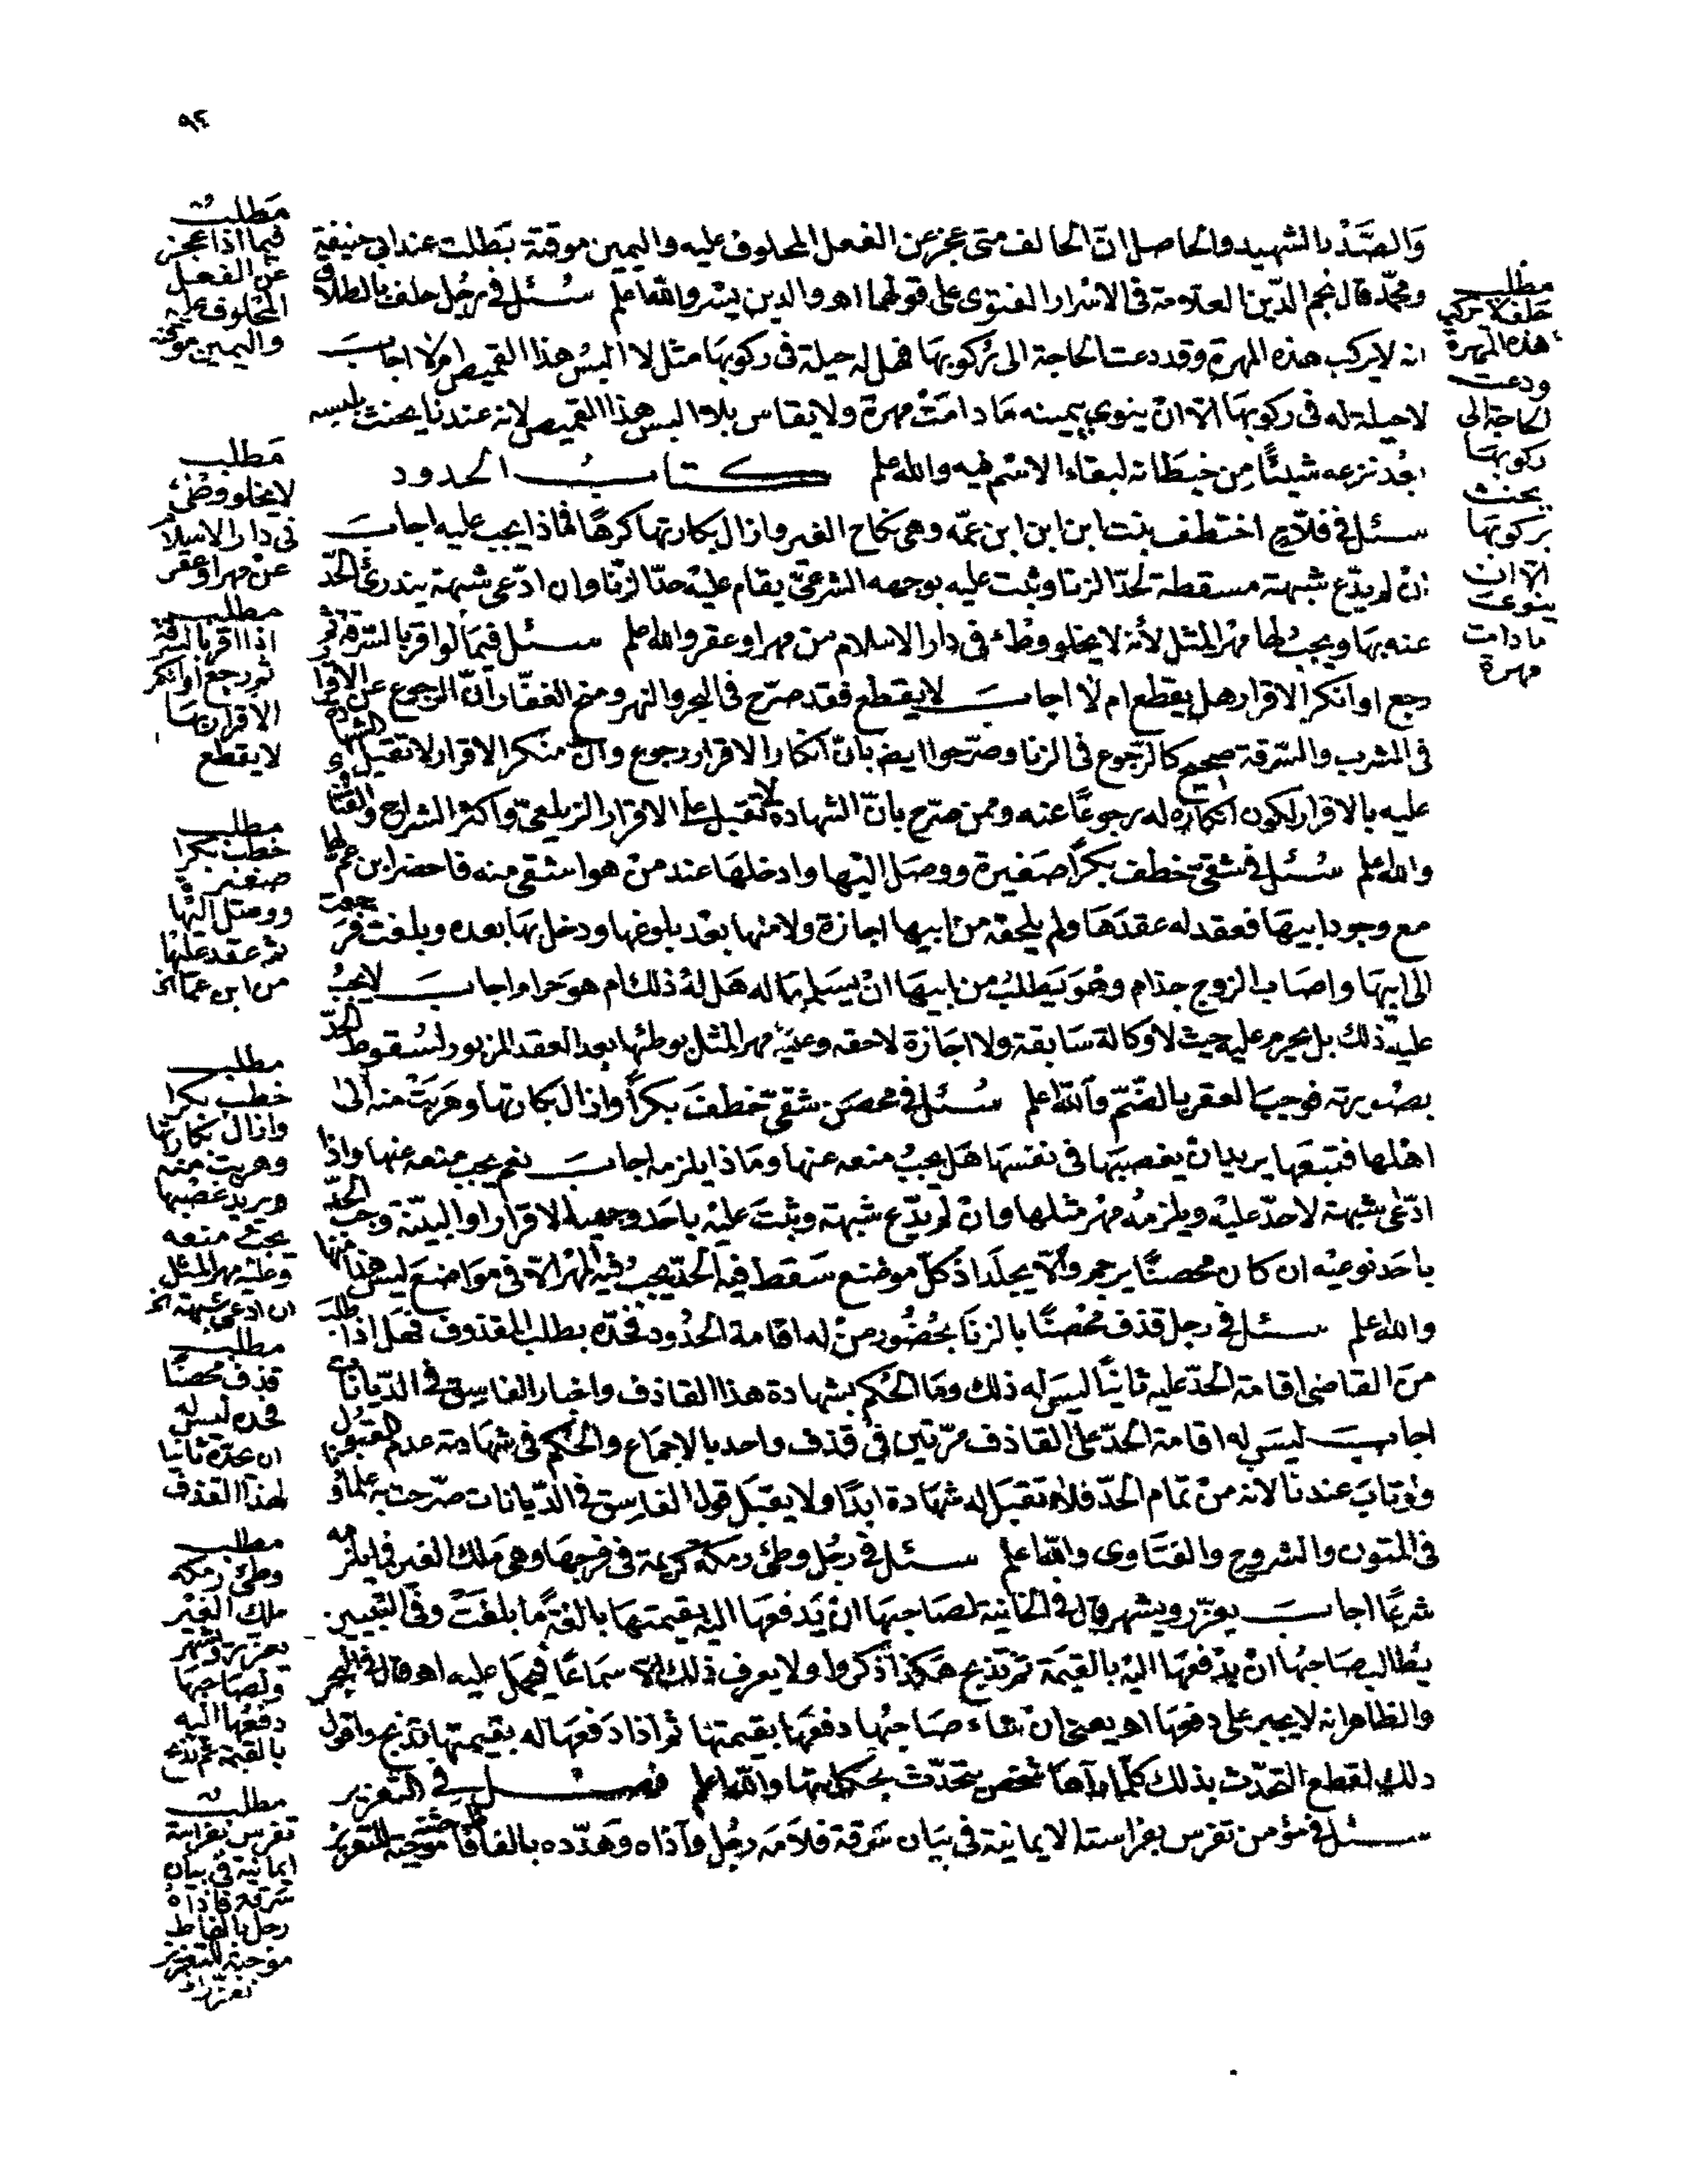 ٩٢
والصدر الشهيد والحاصل ان الحالف متى عجز عن الفعل المحلوف عليه واليمين موقتة بطلت عند ابي حنيفة
ومحمد قال نجم الدين العلامة في الاسرار الفتوى على قولهما اهـ والدين يسر والله اعلم سئل في رجل حلف بالطلاق
انه لا يركب هذه المهرة وقد دعت الحاجة الى ركوبها فهل له حيلة في ركوبها مثل لا البس هذا القميص ام لا اجاب
لا حيلة له في ركوبها الا ان ينوي بيمينه ما دامت مهرة ولا يقاس بلا البس هذا القميص لانه عندنا يحنث بلبسه
بعد نزعه شيئا من خيطانه لبقاء الاسم فيه والله اعلم كتاب الحدود
سئل في فلاح اختطف بنت ابن ابن ابن عمه وهي نكاح الغير وازال بكارتها كرها فماذا يجب عليه اجاب
ان لم يدّع شبهة مسقطة لحد الزنا وثبت عليه بوجهه الشرعي يقام عليه حد الزنا وان ادعى شبهة يندرئ الحد
عنه بها ويجب لها مهر المثل لأنه لا يخلو وطئ في دار الاسلام من مهر او عقر والله اعلم سئل فيما لو اقر بالسرقة ثم
رجع او انكر الاقرار هل يقطع ام لا اجاب لا يقطع فقد صرح في البحر والنهر ومنح الغفار أن الرجوع عن الاقرار
في الشرب والسرقة صحيح كالرجوع في الزنا وصرحوا ايضا بان انكار الاقرار رجوع وان منكر الاقرار لا تقبل الشهادة
عليه بالاقرار لكون انكاره له رجوعا عنه وممن صرح بان الشهادة لا تقبل على الاقرار الزيلعي واكثر الشراح والفتاوى
والله اعلم سئل في شقي خطف بكرا صغيرة ووصل اليها وادخلها عند من هو اشقى منه فاحضر ابن عم لها
مع وجود ابيها فعقد له عقدها ولم يلحقه من ابيها اجازة ولا منها بعد بلوغها ودخل بها بعده وبلغت فرجعت
الى ابيها واصاب الزوج جذام وهو يطلب من ابيها ان يسلمها له هل له ذلك ام هو حرام اجاب لا يجب
عليه ذلك بل يحرم عليه حيث لا وكالة سابقة ولا اجازة لاحقة وعليه مهر المثل بوطئها بعد العقد المزبور لسقوط الحد
بصورته فوجب العقر بالضم والله اعلم سئل في محصن شقي خطف بكرا وازال بكارتها وهربت منه الى
اهلها فتبعها يريد ان يغصبها في نفسها هل يجب منعه عنها وماذا يلزمه اجاب نعم يجب منعه عنها واذا
ادعى شبهة لا حد عليه ويلزمه مهر مثلها وان لم يدّع شبهة وثبت عليه باحد وجهيه الاقرار او البينة وجب الحد
باحد نوعيه ان كان محصنا يرجم والا يجلد اذ كل موضع سقط فيه الحد يجب فيه المهر الا في مواضع ليس هذا منها
والله اعلم سئل في رجل قذف محصنا بالزنا بحضور من له اقامة الحدود فحده بطلب المقذوف فهل اذا طلب
من القاضي اقامة الحد عليه ثانيا ليس له ذلك وما الحكم بشهادة هذا القاذف واخبار الفاسق في الديانات
اجاب ليس له اقامة الحد على القاذف مرتين في قذف واحد بالاجماع والحكم في شهادته عدم القبول
ولو تاب عندنا لانه من تمام الحد فلا تقبل له شهادة ابدا ولا يقبل قول الفاسق في الديانات صرحت به علماؤنا
في المتون والشروح والفتاوى والله اعلم سئل في رجل وطئ رمكة كريمة في فرجها وهي ملك الغير فما يلزمه
شرعا اجاب يعزر ويشهر قال في الخانية لصاحبها ان يدفعها اليه بقيمتها بالغة ما بلغت وفي التبيين
يطالب صاحبها ان يدفعها اليه بالقيمة ثم تذبح هكذا ذكروا ولا يعرف ذلك الا سماعا فيحمل عليه اهـ قال في البحر
والظاهر انه لا يجبر على دفعها اهـ يعني ان شاء صاحبها دفعها بقيمتها ثم اذا دفعها له بقيمتها تذبح واقول
ذلك لقطع التحدث بذلك كلما رآها شخص يتحدث بحكايتها والله اعلم فصل في التعزير
سئل في مؤمن تفرس بفراسته الايمانية في بيان سرقة فلامه رجل وآذاه وهدده بالفاظ موحشة موجبة للتعزير
مطلب
حلف لا يركب
هذه المهرة
ودعت
الحاجة الى
ركوبها
يحنث
بركوبها
الا ان
ينوي
ما دامت
مهرة
مطلب
فيما اذا عجز
عن الفعل
المحلوف عليه
واليمين موقتة
مطلب
لا يخلو وطئ
في دار الاسلام
عن مهر او عقر
مطلب
اذا اقر بالسرقة
ثم رجع او انكر
الاقرار بها
لا يقطع
مطلب
خطف بكرا
صغيرة
ووصل اليها
ثم عقد عليها
من ابن عمها الخ
مطلب
خطب بكرا
وازال بكارتها
وهربت منه
ويريد غصبها
يجب منعه
وعليه مهر المثل
ان ادعى شبهة الخ
مطلب
قذف محصنا
فحده ليس له
ان يحده ثانيا
لهذا القذف
مطلب
وطئ رمكة
ملك الغير
يعزر ويشهر
ولصاحبها
دفعها اليه
بالقيمة ثم تذبح
مطلب
تفرس بفراسة
ايمانية في بيان
سرقة فاذاه
رجل بالفاظ
موجبة للتعزير